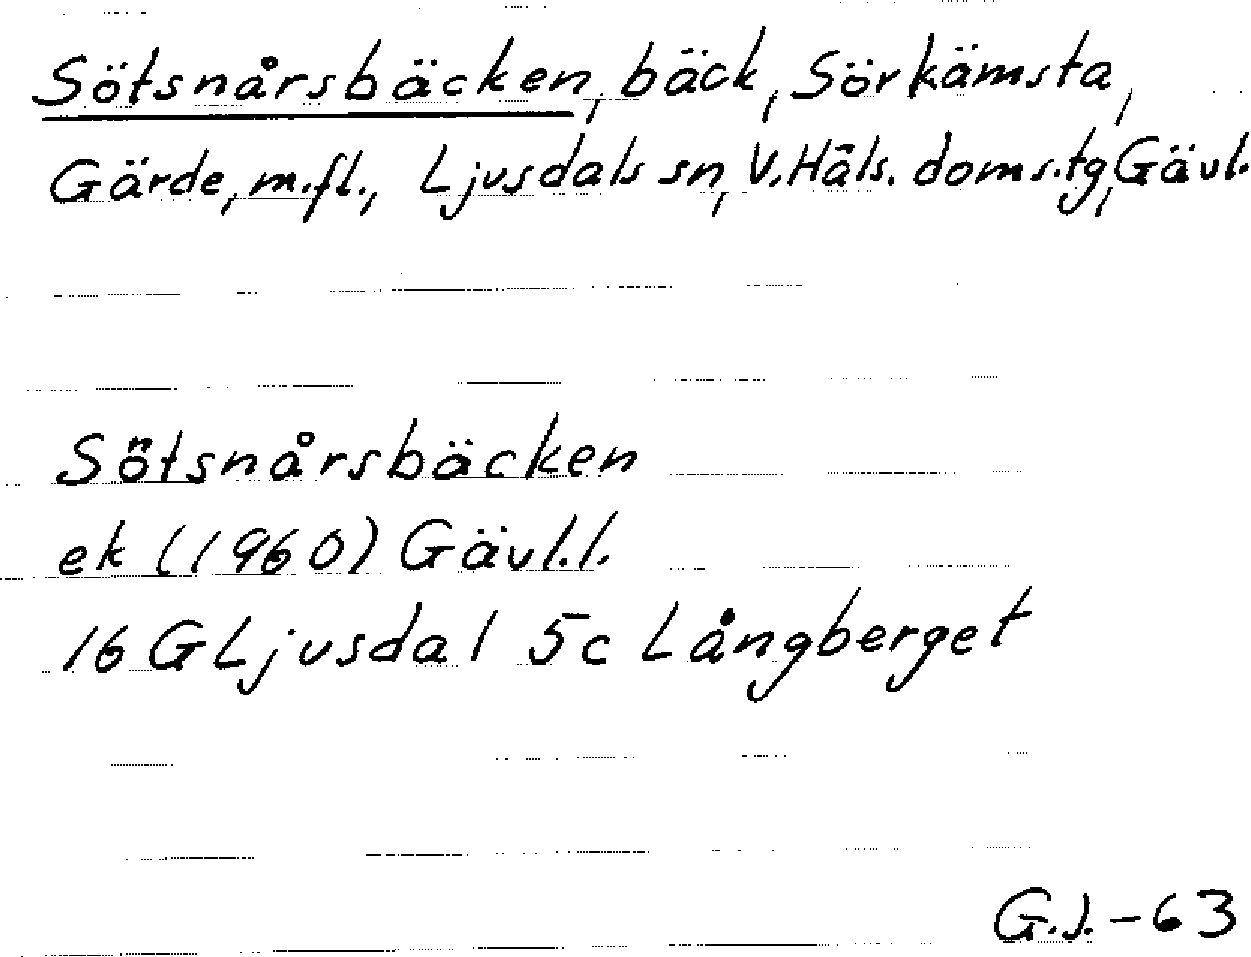 Sötsnårsbäcken, bäck, Sörkämsta,
Gärde, m.fl., Ljusdals sn, V.Häls. doms.tg, Gävl.
Sötsnårsbäcken
ek (1960) Gävl.l.
16 G Ljusdal 5c Långberget
G.J.-63